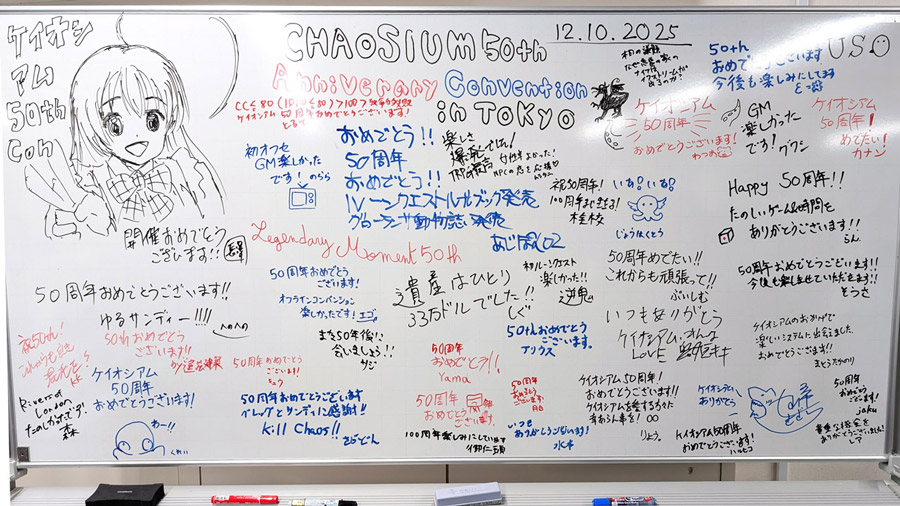 ケイオシ
アム
50th
con
CHAOSIUM 50th
Anniverary Convention
in ToKyo
12.10.2025
50th
おめでとうございます
今後も楽しみにしてます
USO
ケイオシアム
50周年
おめでとうございます!
GM
楽しかった
です!グワン
ケイオシアム
50周年!
めでたい!
カナン
ケイオシアム 50周年おめでとうございます!
初オフセ
GM楽しかった
です! のらら
おめでとう!!
50周年
おめでとう!!
ルーンクエストルールブック発売
グローランサ動物誌発売
あじぽん02
楽しさ
祝50周年!
100周年まで生きる!
桂枝
いあ!いあ!
じょうほくとう
Happy 50周年!!
たのしいゲーム&時間を
ありがとうございます!!
らん
開催おめでとう
ございます!!
Legendary Moment 50th
50周年おめでとう
ございます!
オフラインコンベンション
楽しかったです!エゴ
遺産はひとり
33万ドルでした!!
しぐ
初ルーンクエスト
楽しかった!!
50周年めでたい!!
これからも頑張って!!
ぶいしむ
50周年おめでとうございます!!
今後も楽しませていただきます!!
そうさ
50周年おめでとうございます!!
ゆるサンディー!!!!
へのへの
いつもありがとう
ケイオシアム・オムユ
LOVE
祝50th!
50thおめでとう
ございます!!
また50年後に
会いましょう!!
サジ
50thおめでとう
ございます。
アリウス
ケイオシアムのおかげで
楽しいシステムに出会えました。
おめでとうございます!!
Rivers of
London
たのしかったです!
森
ケイオシアム
50周年
おめでとうございます!
わー!!
50周年おめでとう
ございます!
ちょう
50周年おめでとうございます
グレッグとサンディに感謝!!
Kill Chaos!!
50周年
おめでとう!!
Yama
50周年
おめでとう
ございます。
100周年楽しみにしています
50周年
おめでとう
ございます!
いつも
ありがとうございます!
水本
ケイオシアム50周年!
おめでとうございます!!
ケイオシアムを愛する方々に
幸あらん事を!
りょう。
ケイオシアム、
ありがとう
ー!
ケイオシアム50周年
おめでとうございます!
ハルヒコ
50周年
おめでとう
ございます!
jaku
貴重な機会を
ありがとうございました!
シア